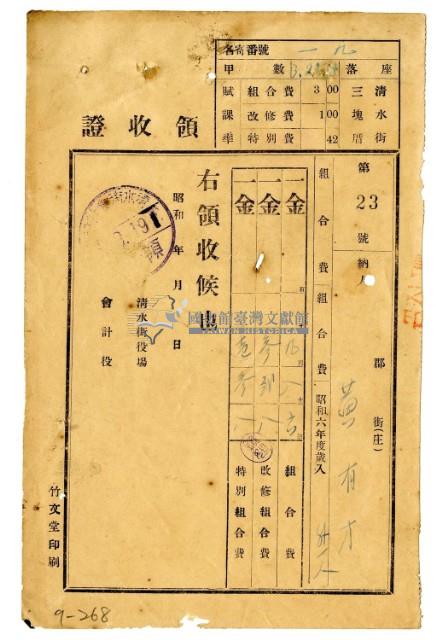 名寄番號 一九
甲數
座落
賦課率
組合費 3 00
改修費 1 00
特別費 42
清水街
三塊厝
領收證
第23號
納人
郡
街(庄)
黃有才
組合費組合費 昭和六年度歲入
一金
組合費
一金
改修組合費
一金
特別組合費
右領收候也
昭和 年 月 日
清水街役場
會計役
竹文堂印刷
國史館臺灣文獻館
TAIWAN HISTORICA
9-268